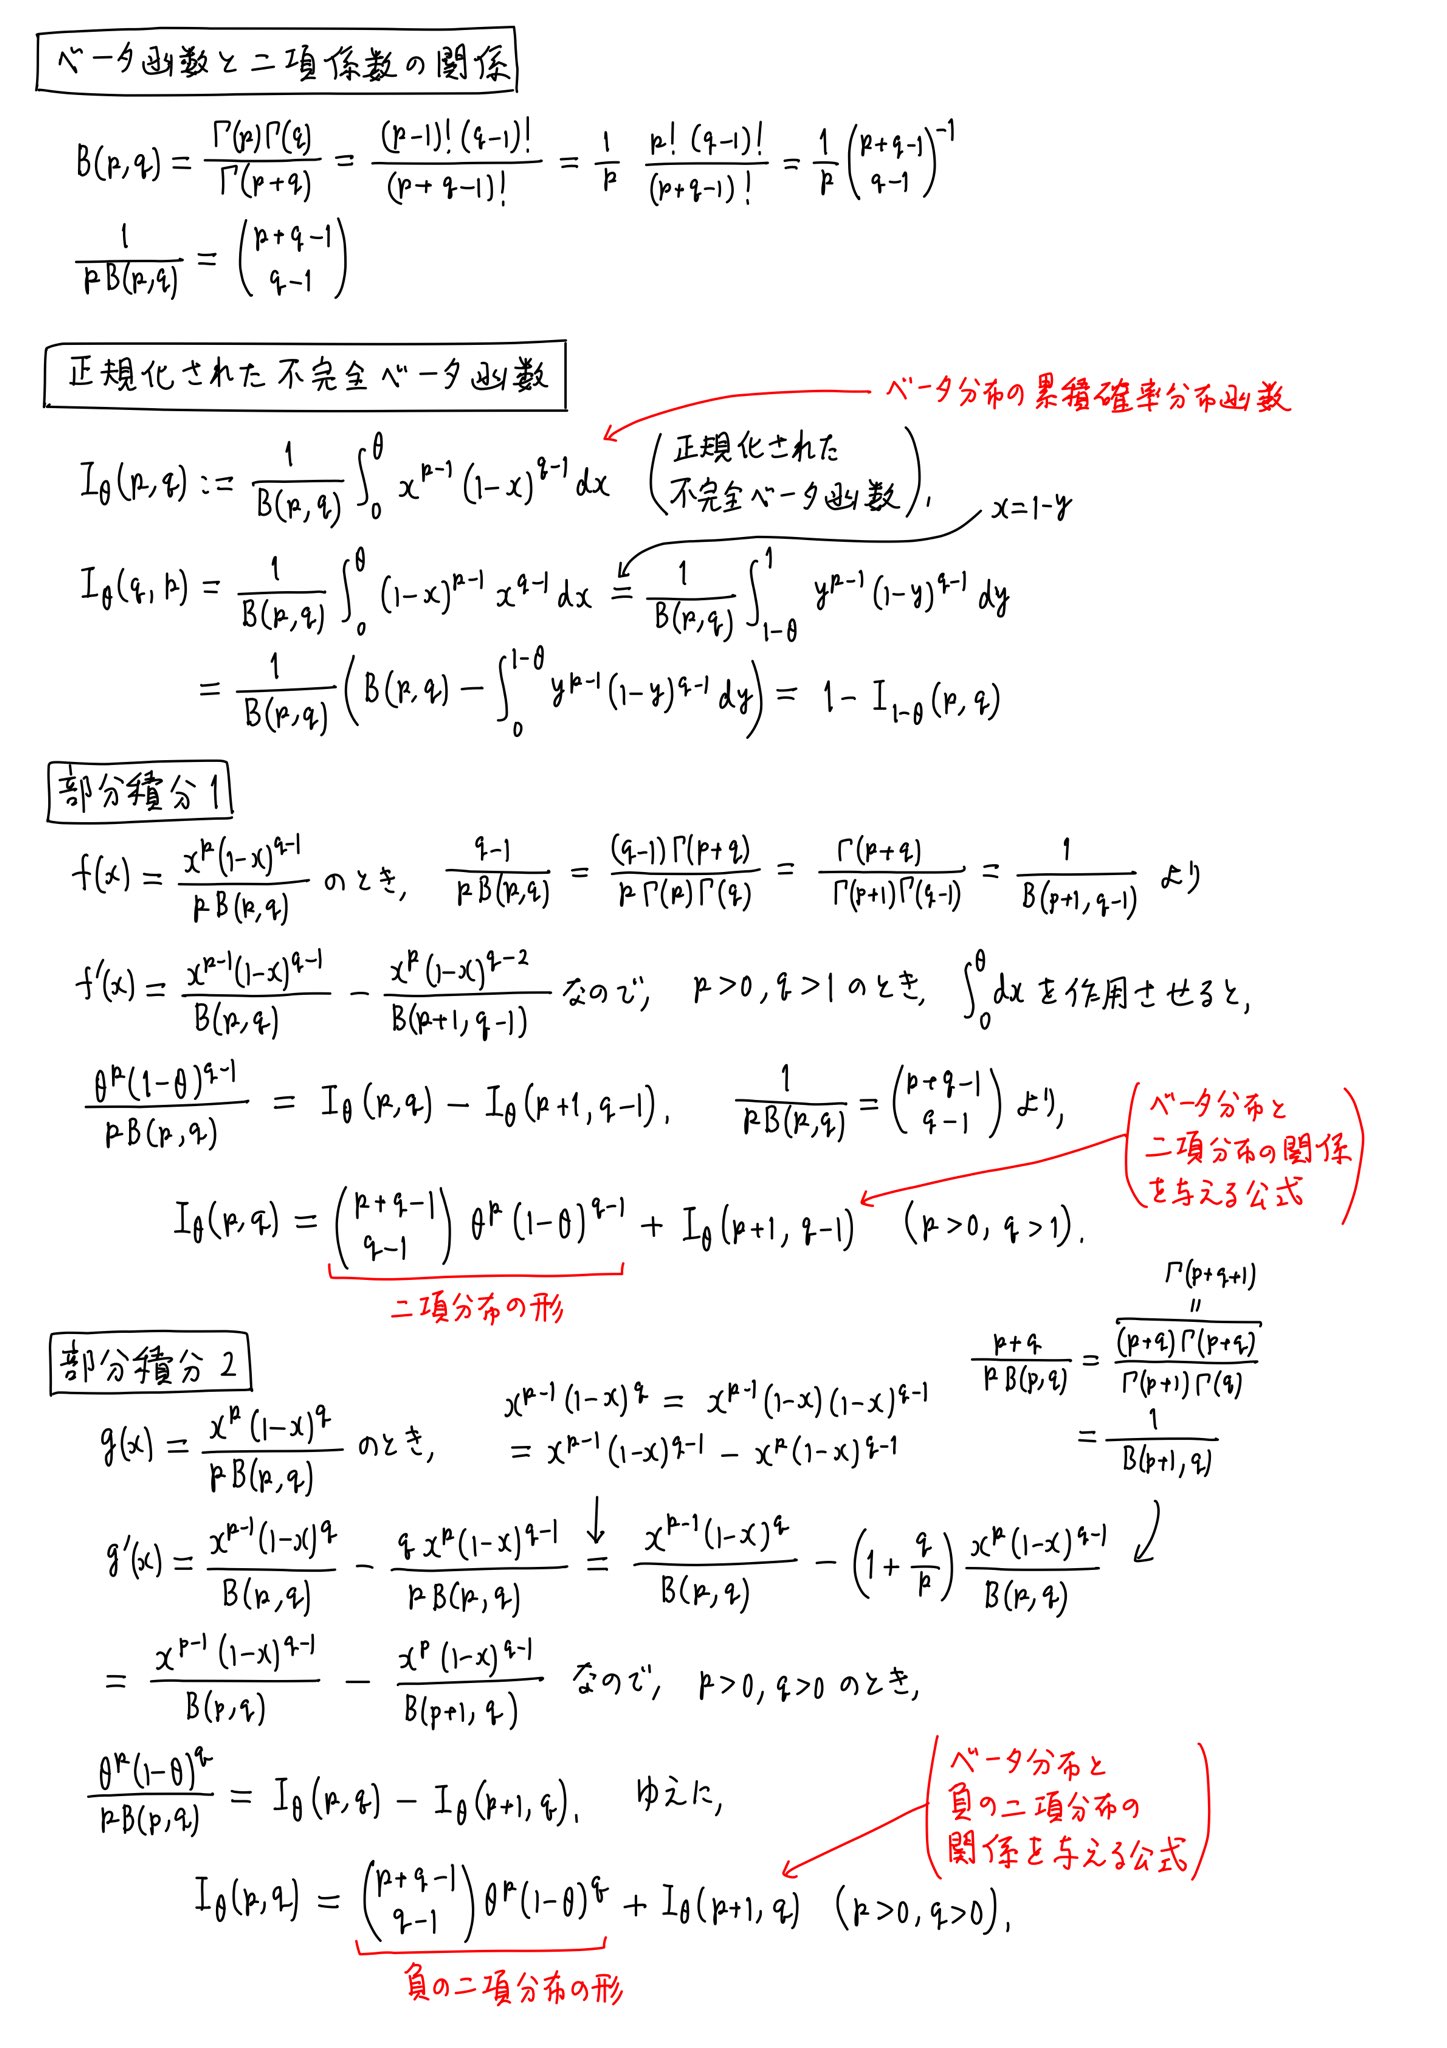 ベータ函数と二項係数の関係
B(p,q) = Γ(p)Γ(q)/Γ(p+q) = (p-1)!(q-1)!/(p+q-1)! = 1/p p!(q-1)!/(p+q-1)! = 1/p (p+q-1 q-1)^{-1}
1/(pB(p,q)) = (p+q-1 q-1)
正規化された不完全ベータ函数
ベータ分布の累積確率分布函数
I_θ(p,q) := 1/B(p,q) ∫_0^θ x^{p-1}(1-x)^{q-1}dx (正規化された 不完全ベータ函数).
x=1-y
I_θ(q,p) = 1/B(p,q) ∫_0^θ (1-x)^{p-1} x^{q-1}dx = 1/B(p,q) ∫_{1-θ}^1 y^{p-1}(1-y)^{q-1}dy
= 1/B(p,q) (B(p,q) - ∫_0^{1-θ} y^{p-1}(1-y)^{q-1}dy) = 1 - I_{1-θ}(p,q)
部分積分1
f(x) = x^p(1-x)^{q-1}/(pB(p,q)) のとき, (q-1)/(pB(p,q)) = (q-1)Γ(p+q)/(pΓ(p)Γ(q)) = Γ(p+q)/(Γ(p+1)Γ(q-1)) = 1/B(p+1,q-1) より
f'(x) = x^{p-1}(1-x)^{q-1}/B(p,q) - x^p(1-x)^{q-2}/B(p+1,q-1) なので, p>0, q>1 のとき, ∫_0^θ dx を作用させると,
θ^p(1-θ)^{q-1}/(pB(p,q)) = I_θ(p,q) - I_θ(p+1,q-1). 1/(pB(p,q)) = (p+q-1 q-1) より,
(ベータ分布と
二項分布の関係
を与える公式)
I_θ(p,q) = (p+q-1 q-1) θ^p(1-θ)^{q-1} + I_θ(p+1,q-1) (p>0, q>1).
二項分布の形
部分積分2
Γ(p+q+1)
=
(p+q)/(pB(p,q)) = (p+q)Γ(p+q)/(Γ(p+1)Γ(q))
= 1/B(p+1,q)
g(x) = x^p(1-x)^q/(pB(p,q)) のとき,
x^{p-1}(1-x)^q = x^{p-1}(1-x)(1-x)^{q-1}
= x^{p-1}(1-x)^{q-1} - x^p(1-x)^{q-1}
g'(x) = x^{p-1}(1-x)^q/B(p,q) - q x^p(1-x)^{q-1}/(pB(p,q)) = x^{p-1}(1-x)^q/B(p,q) - (1 + q/p) x^p(1-x)^{q-1}/B(p,q)
= x^{p-1}(1-x)^{q-1}/B(p,q) - x^p(1-x)^{q-1}/B(p+1,q) なので, p>0, q>0 のとき,
θ^p(1-θ)^q/(pB(p,q)) = I_θ(p,q) - I_θ(p+1,q). ゆえに,
(ベータ分布と
負の二項分布の
関係を与える公式)
I_θ(p,q) = (p+q-1 q-1) θ^p(1-θ)^q + I_θ(p+1,q) (p>0, q>0).
負の二項分布の形